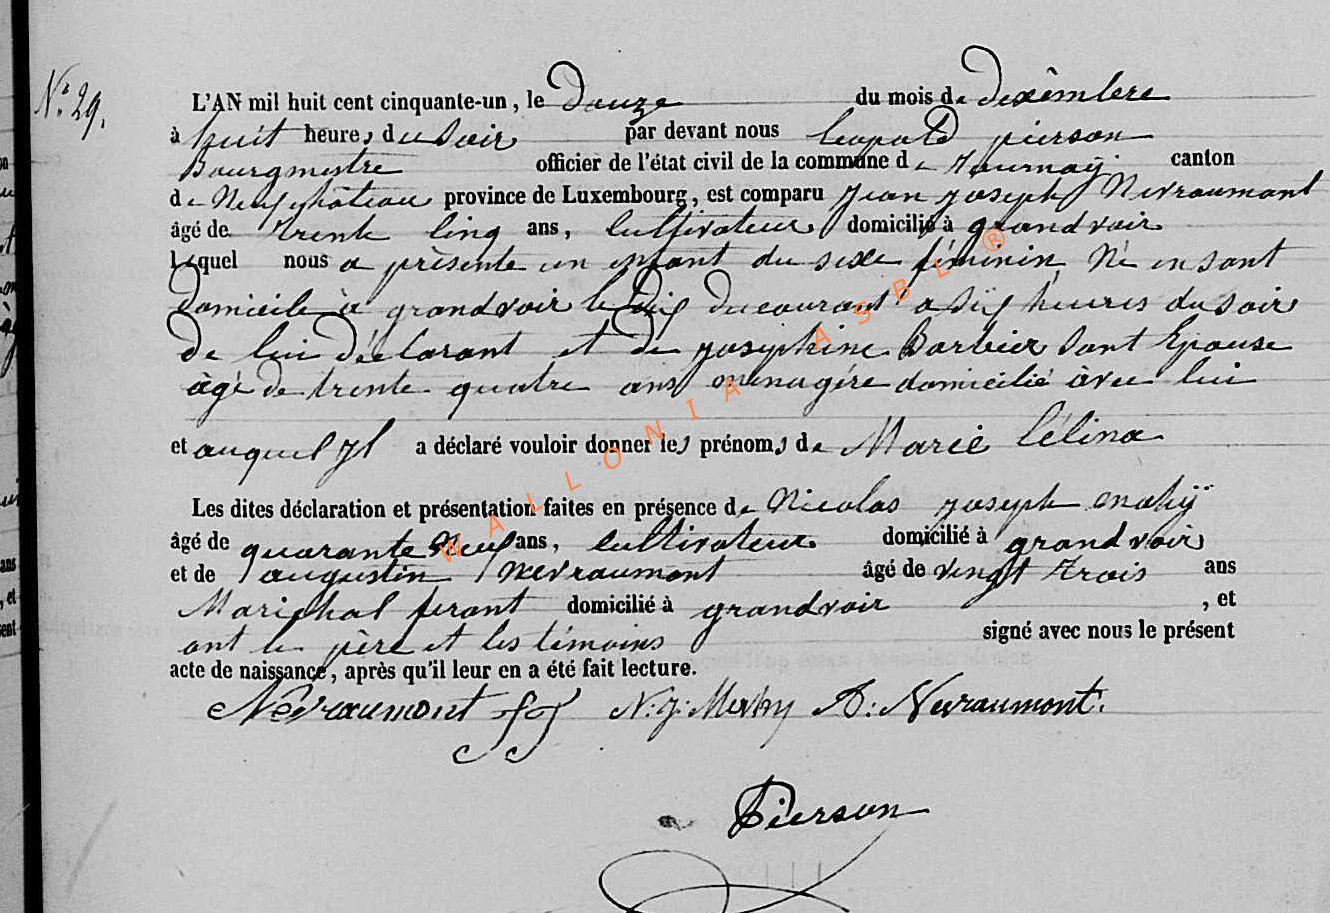 N° 29.
L'AN mil huit cent cinquante-un, le douze du mois de décembre
à huit heures du soir par devant nous Leopold pierson
Bourgmestre officier de l'état civil de la commune de Tournay canton
de Neufchâteau province de Luxembourg, est comparu Jean Joseph Nevraumont
âgé de trente cinq ans, cultivateur domicilié à grandvoir
lequel nous a présenté un enfant du sexe féminin Né en sont
domicile à grandvoir le dix du courant a six heures du soir
de lui déclarant et de josephine Barbier sont Epouse
âgé de trente quatre ans menagére domicilié àvec lui
et auquel il a déclaré vouloir donner les prénoms de Marie Célina
Les dites déclaration et présentation faites en présence de Nicolas joseph
âgé de quarante Neuf ans, cultivateur domicilié à grandvoir
et de augustin Nevraumont âgé de vingt trois ans
Marichal ferant domicilié à grandvoir , et
ont le père et les témoins signé avec nous le présent
acte de naissance, après qu'il leur en a été fait lecture.
Nevraumont JJ N: J: A: Nevraumont.
Pierson
WALLONIA ASBL ®